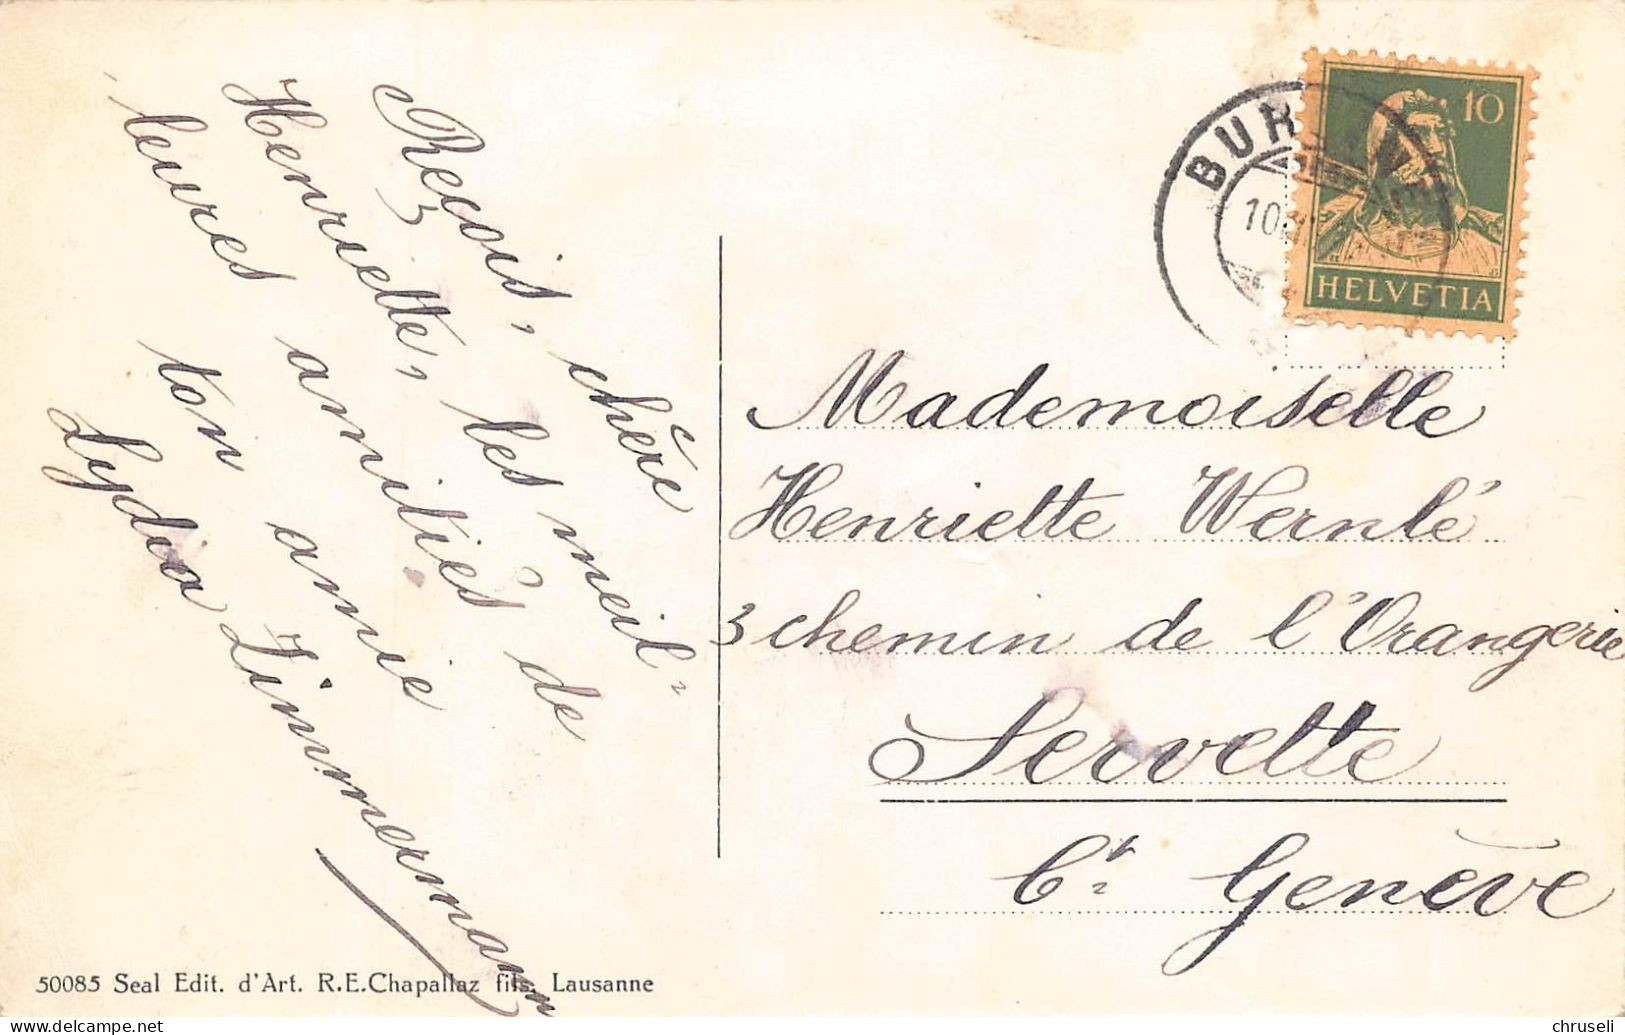 Reçois, chère
Henriette, les meil-
leures amitiés de
ton amie
Lydia Zimmermann
10
HELVETIA
10
Mademoiselle
Henriette Wernlé
3 chemin de l'Orangerie
Servette
Ct. Genève
50085 Seal Edit. d'Art. R.E.Chapallaz fils, Lausanne
www.delcampe.net
chruseli